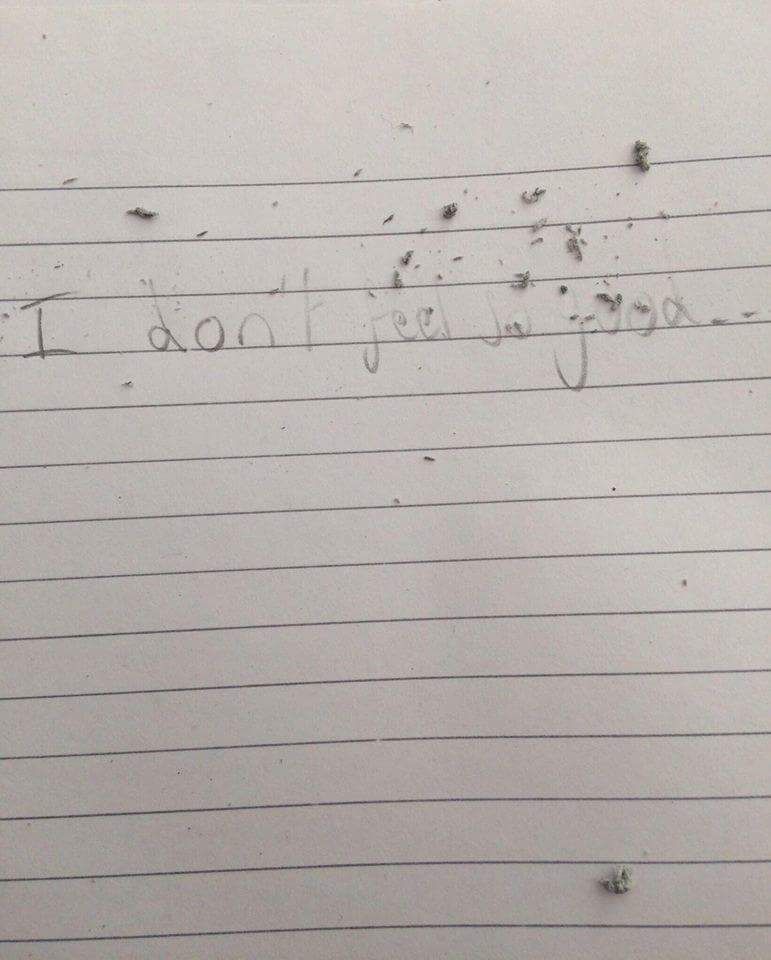 I don't feel so good...